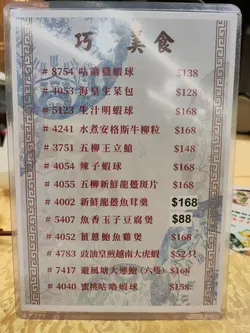 巧 美食
# 8754 咕嚕雞蝦球 $138
# 4053 海皇生菜包 $128
# 5123 生汁明蝦球 $168
# 4241 水煮安格斯牛柳粒 $168
# 5535 五柳王立鯧 $148
# 4054 辣子蝦球 $168
# 4055 五柳新鮮龍躉斑片 $168
# 4002 新鮮龍躉魚茸羹 $168
# 5407 魚香玉子豆腐煲 $88
# 4052 薑蔥鮑魚雞煲 $168
# 4783 豉油皇煎越南大虎蝦 $52只
# 7417 避風塘大連鮑(六隻) $168
# 4040 蜜桃咕嚕蝦球 $158